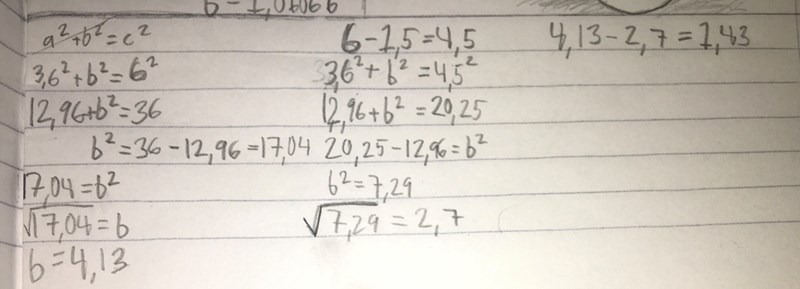 a² + b² = c²
3,6² + b² = 6²
12,96 + b² = 36
b² = 36 - 12,96 = 17,04
17,04 = b²
√17,04 = b
b = 4,13
6 - 1,5 = 4,5
3,6² + b² = 4,5²
12,96 + b² = 20,25
20,25 - 12,96 = b²
b² = 7,29
√7,29 = 2,7
4,13 - 2,7 = 1,43